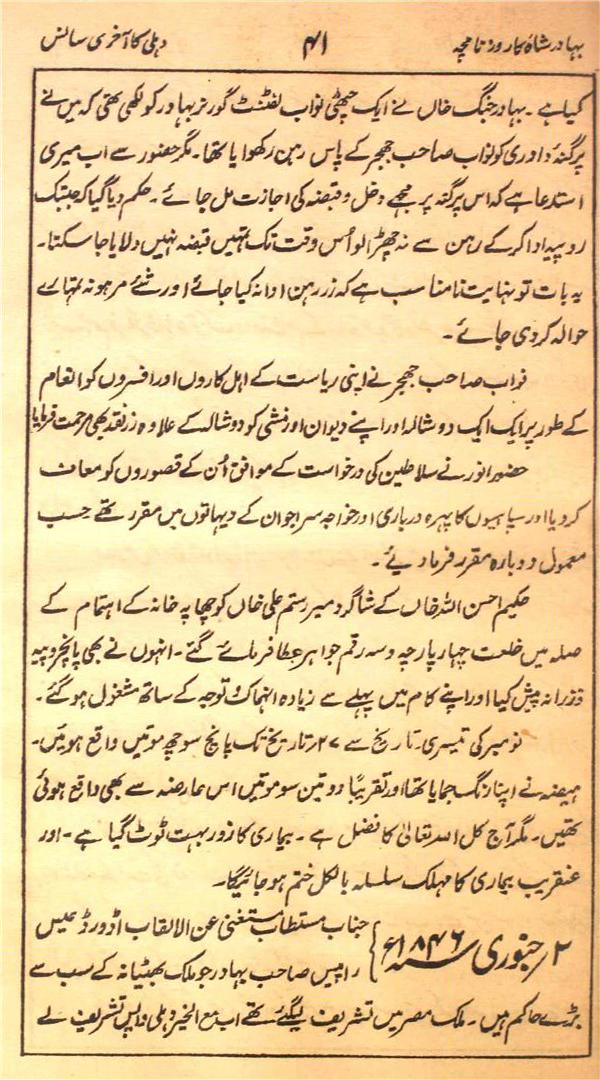 بہادر شاہ کا روزنامچہ ۴۱ دہلی کا آخری سانس
کیا ہے ۔ بہادر جنگ خاں نے ایک چھٹی نواب لفٹنٹ گورنر بہادر کو لکھی تھی کہ میں نے
پرگنۂ دادری کو نواب صاحب جھجر کے پاس رہن رکھوایا تھا۔ مگر حضور سے اب میری
استدعا ہے کہ اس پرگنہ پر مجھے دخل و قبضہ کی اجازت مل جائے ۔ حکم دیا گیا کہ جبتک
روپیہ ادا کر کے رہن سے نہ چھڑالو اُس وقت تک تمہیں قبضہ نہیں دلایا جا سکتا۔
یہ بات تو نہایت نامناسب ہے کہ زر رہن ادا نہ کیا جائے اور شئے مرہونہ تمہارے
حوالہ کر دی جائے ۔
نواب صاحب جھجر نے اپنی ریاست کے اہل کاروں اور افسروں کو انعام
کے طور پر ایک ایک دوشالہ اور اپنے دیوان اور منشی کو دوشالہ کے علاوہ زر نقد بھی مرحمت فرمایا
حضور انور نے سلاطین کی درخواست کے موافق اُن کے قصوروں کو معاف
کر دیا اور سپاہیوں کا پہرہ درباری اور خواجہ سرا جو ان کے دیہاتوں میں مقرر تھے حسب
معمول دوبارہ مقرر فرما دیئے ۔
حکیم احسن اللہ خاں کے شاگرد میر رستم علی خاں کو چھاپہ خانہ کے اہتمام کے
صلہ میں خلعت چہار پارچہ و سہ رقم جواہر عطا فرمائے گئے ۔ انہوں نے بھی پانچ روپیہ
نذرانہ پیش کیا اور اپنے کام میں پہلے سے زیادہ انہماک و توجہ کے ساتھ مشغول ہو گئے ۔
نومبر کی تیسری تاریخ سے ۲۷ر تاریخ تک پانچ سو چھ موتیں واقع ہوئیں۔
ہیضہ نے اپنا رنگ جمایا تھا اور تقریباً دو تین سو موتیں اس عارضہ سے بھی واقع ہوئی
تھیں ۔ مگر آج کل اللہ تعالیٰ کا فضل ہے ۔ بیماری کا زور بہت ٹوٹ گیا ہے ۔ اور
عنقریب بیماری کا مہلک سلسلہ بالکل ختم ہو جائیگا۔
۲ر جنوری سنہ ۱۸۴۶ء
جناب مستطاب مستغنی عن الالقاب اڈورڈ
صاحب بہادر جو ملک بھٹیانہ کے سب سے
بڑے حاکم ہیں ۔ ملک مصر میں تشریف لیگئے تھے اب مع الخیر دہلی واپس تشریف لے